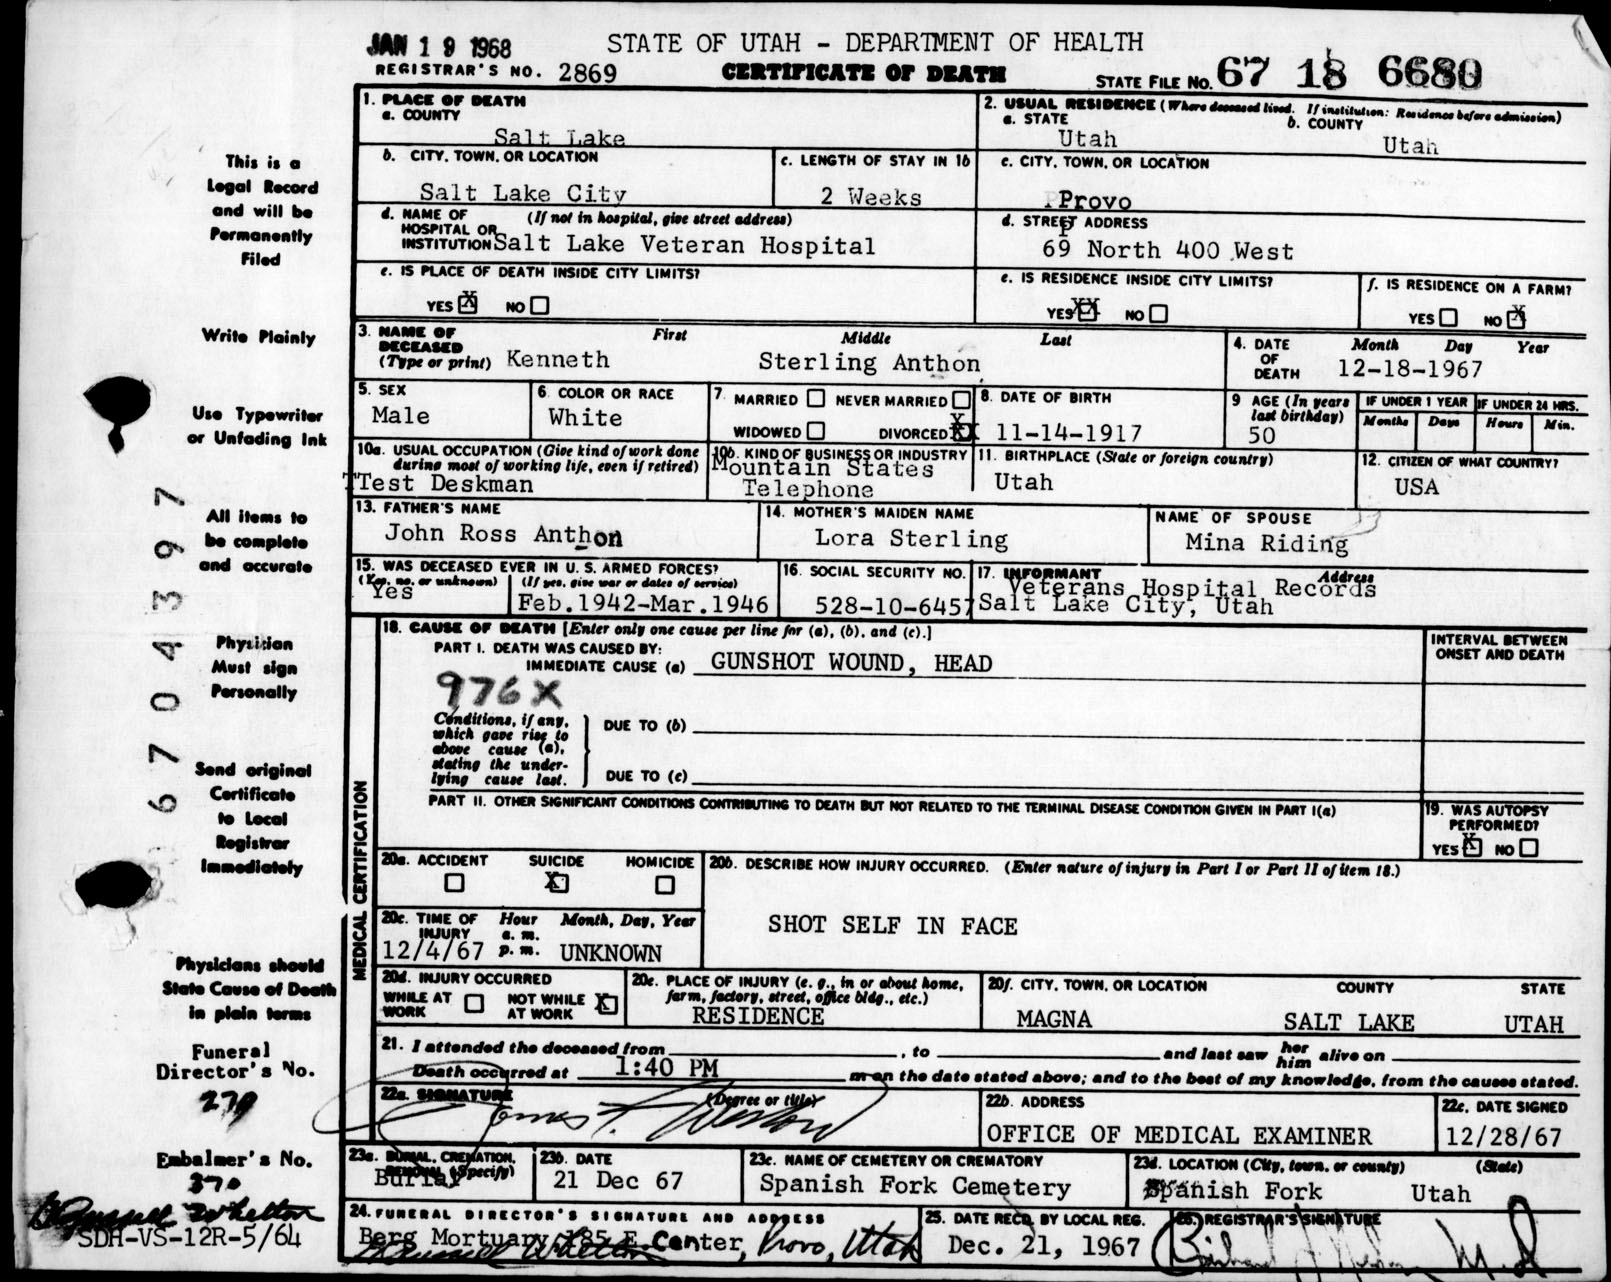 JAN 19 1968
STATE OF UTAH - DEPARTMENT OF HEALTH
REGISTRAR'S NO. 2869
CERTIFICATE OF DEATH
STATE FILE NO. 67 18 6680
1. PLACE OF DEATH
a. COUNTY
Salt Lake
2. USUAL RESIDENCE (Where deceased lived. If institution: Residence before admission)
a. STATE
Utah
b. COUNTY
Utah
b. CITY, TOWN, OR LOCATION
Salt Lake City
c. LENGTH OF STAY IN 1b
2 Weeks
c. CITY, TOWN, OR LOCATION
Provo
d. NAME OF HOSPITAL OR INSTITUTION
(If not in hospital, give street address)
Salt Lake Veteran Hospital
d. STREET ADDRESS
69 North 400 West
e. IS PLACE OF DEATH INSIDE CITY LIMITS?
YES X NO
e. IS RESIDENCE INSIDE CITY LIMITS?
YES XX NO
f. IS RESIDENCE ON A FARM?
YES NO X
3. NAME OF DECEASED
(Type or print)
First Middle Last
Kenneth Sterling Anthon
4. DATE OF DEATH
Month Day Year
12-18-1967
5. SEX
Male
6. COLOR OR RACE
White
7. MARRIED NEVER MARRIED
WIDOWED DIVORCED X
8. DATE OF BIRTH
11-14-1917
9 AGE (In years last birthday)
50
IF UNDER 1 YEAR
Months Days
IF UNDER 24 HRS.
Hours Min.
10a. USUAL OCCUPATION (Give kind of work done during most of working life, even if retired)
TTest Deskman
10b. KIND OF BUSINESS OR INDUSTRY
Mountain States
Telephone
11. BIRTHPLACE (State or foreign country)
Utah
12. CITIZEN OF WHAT COUNTRY?
USA
13. FATHER'S NAME
John Ross Anthon
14. MOTHER'S MAIDEN NAME
Lora Sterling
NAME OF SPOUSE
Mina Riding
15. WAS DECEASED EVER IN U.S. ARMED FORCES?
(Yes, no, or unknown) (If yes, give war or dates of service)
Yes
Feb.1942-Mar.1946
16. SOCIAL SECURITY NO.
528-10-6457
17. INFORMANT Address
Veterans Hospital Records
Salt Lake City, Utah
MEDICAL CERTIFICATION
18. CAUSE OF DEATH [Enter only one cause per line for (a), (b), and (c).]
PART I. DEATH WAS CAUSED BY:
IMMEDIATE CAUSE (a) GUNSHOT WOUND, HEAD
INTERVAL BETWEEN ONSET AND DEATH
976X
Conditions, if any,
which gave rise to
above cause (a),
stating the under-
lying cause last.
DUE TO (b)
DUE TO (c)
PART II. OTHER SIGNIFICANT CONDITIONS CONTRIBUTING TO DEATH BUT NOT RELATED TO THE TERMINAL DISEASE CONDITION GIVEN IN PART I(a)
19. WAS AUTOPSY PERFORMED?
YES X NO
20a. ACCIDENT SUICIDE HOMICIDE
X
20b. DESCRIBE HOW INJURY OCCURRED. (Enter nature of injury in Part I or Part II of item 18.)
SHOT SELF IN FACE
20c. TIME OF INJURY Hour Month, Day, Year
a. m.
p. m.
12/4/67 UNKNOWN
20d. INJURY OCCURRED
WHILE AT WORK NOT WHILE AT WORK X
20e. PLACE OF INJURY (e. g., in or about home, farm, factory, street, office bldg., etc.)
RESIDENCE
20f. CITY, TOWN, OR LOCATION COUNTY STATE
MAGNA SALT LAKE UTAH
21. I attended the deceased from , to and last saw her him alive on
Death occurred at 1:40 PM m on the date stated above; and to the best of my knowledge, from the causes stated.
22a. SIGNATURE (Degree or title)
James T. Weston
22b. ADDRESS
OFFICE OF MEDICAL EXAMINER
22c. DATE SIGNED
12/28/67
23a. BURIAL, CREMATION, REMOVAL (Specify)
Burial
23b. DATE
21 Dec 67
23c. NAME OF CEMETERY OR CREMATORY
Spanish Fork Cemetery
23d. LOCATION (City, town, or county) (State)
Spanish Fork Utah
24. FUNERAL DIRECTOR'S SIGNATURE AND ADDRESS
Berg Mortuary, 185 E. Center, Provo, Utah
25. DATE REC'D. BY LOCAL REG.
Dec. 21, 1967
26. REGISTRAR'S SIGNATURE
This is a
Legal Record
and will be
Permanently
Filed
Write Plainly
Use Typewriter
or Unfading Ink
All items to
be complete
and accurate
6704397
Physician
Must sign
Personally
Send original
Certificate
to Local
Registrar
Immediately
Physicians should
State Cause of Death
in plain terms
Funeral
Director's No.
279
Embalmer's No.
370
SDH-VS-12R-5/64